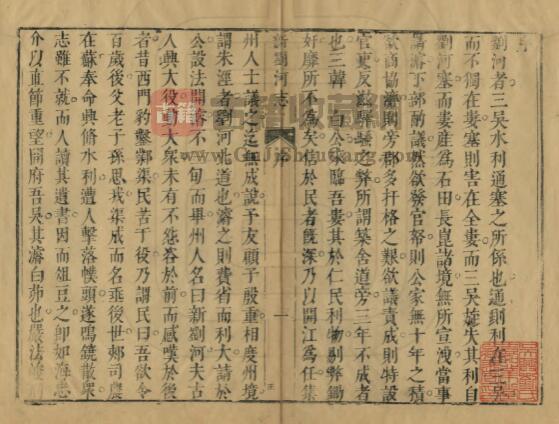 序
劉河者三吳水利通塞之所係也通則利在三吳
而不獨在婁塞則害在全婁而三吳旋失其利自
劉河塞而婁產爲石田長崑諸境無所宣洩當事
請濬下部酌議欲發官帑則公家無十年之積
欲商協濟則旁郡多扞格之艱欲議責成則特設
官吏反滋驛騷之弊所謂築舍道旁三年不成者
也三韓 公來臨吾婁其於仁民利物剔弊鋤
奸靡所不爲矣信於民者旣深乃以開江爲任集
新劉河志 序 一
州人士議之迄無成說予友顧子殷重相度州境
謂朱涇者劉河北道也濬之則費省而利大請於
公設法開 不 旬而畢州人名曰新劉河夫古
人興大役 大衆未有不怨咨於前而感嘆於後
者昔西門豹鑿鄴渠民苦于役乃謂民曰吾欲令
百歲後父老子孫思我渠成而名垂後世郟司農
在蘇奉命興脩水利遭人擊落幞頭遂鳴鐃散衆
志雖不就而人讀其遺書因而俎豆之卽如海忠
介以直節重望開府吾吳其濬白茆也嚴法峻